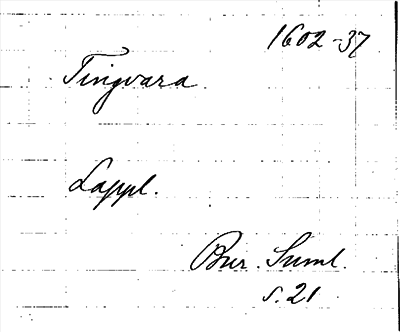 1602-37
Tingvara
Lappl.
Bur. Suml.
s. 21